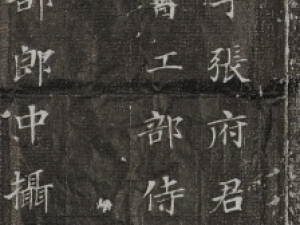 張府君
工部侍
郎中攝